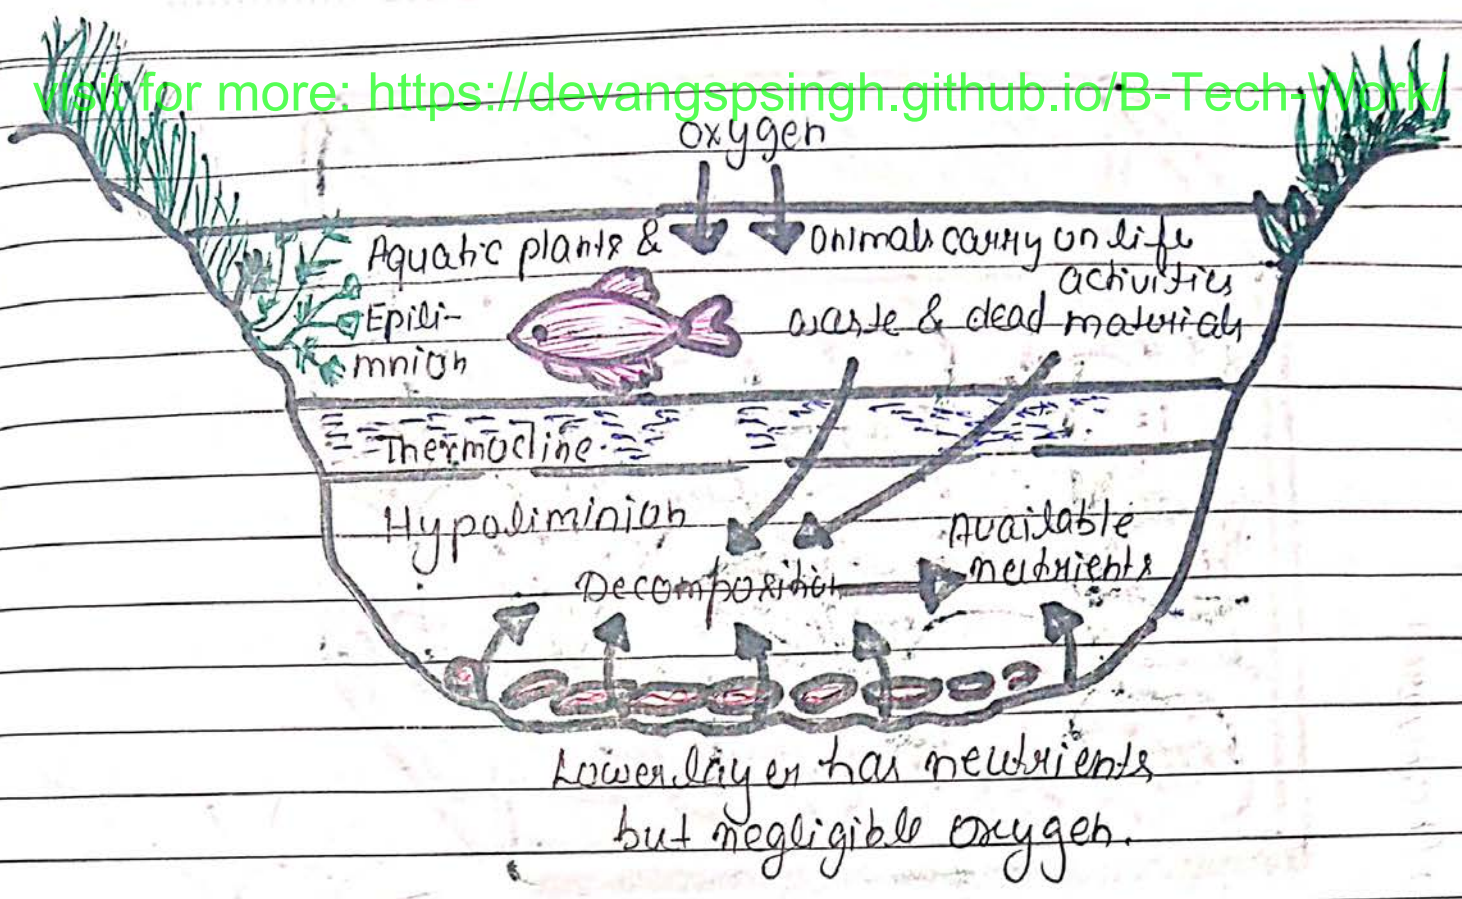 visit for more: https://devangspsingh.github.io/B-Tech-Work/
oxygen
Aquatic plants & animals carry on life
activities
Epili-
mnion
waste & dead materials
Thermocline.
Hypoliminion
Available
neutrients
Decomposition
Lower layer has neutrients
but negligible oxygen.